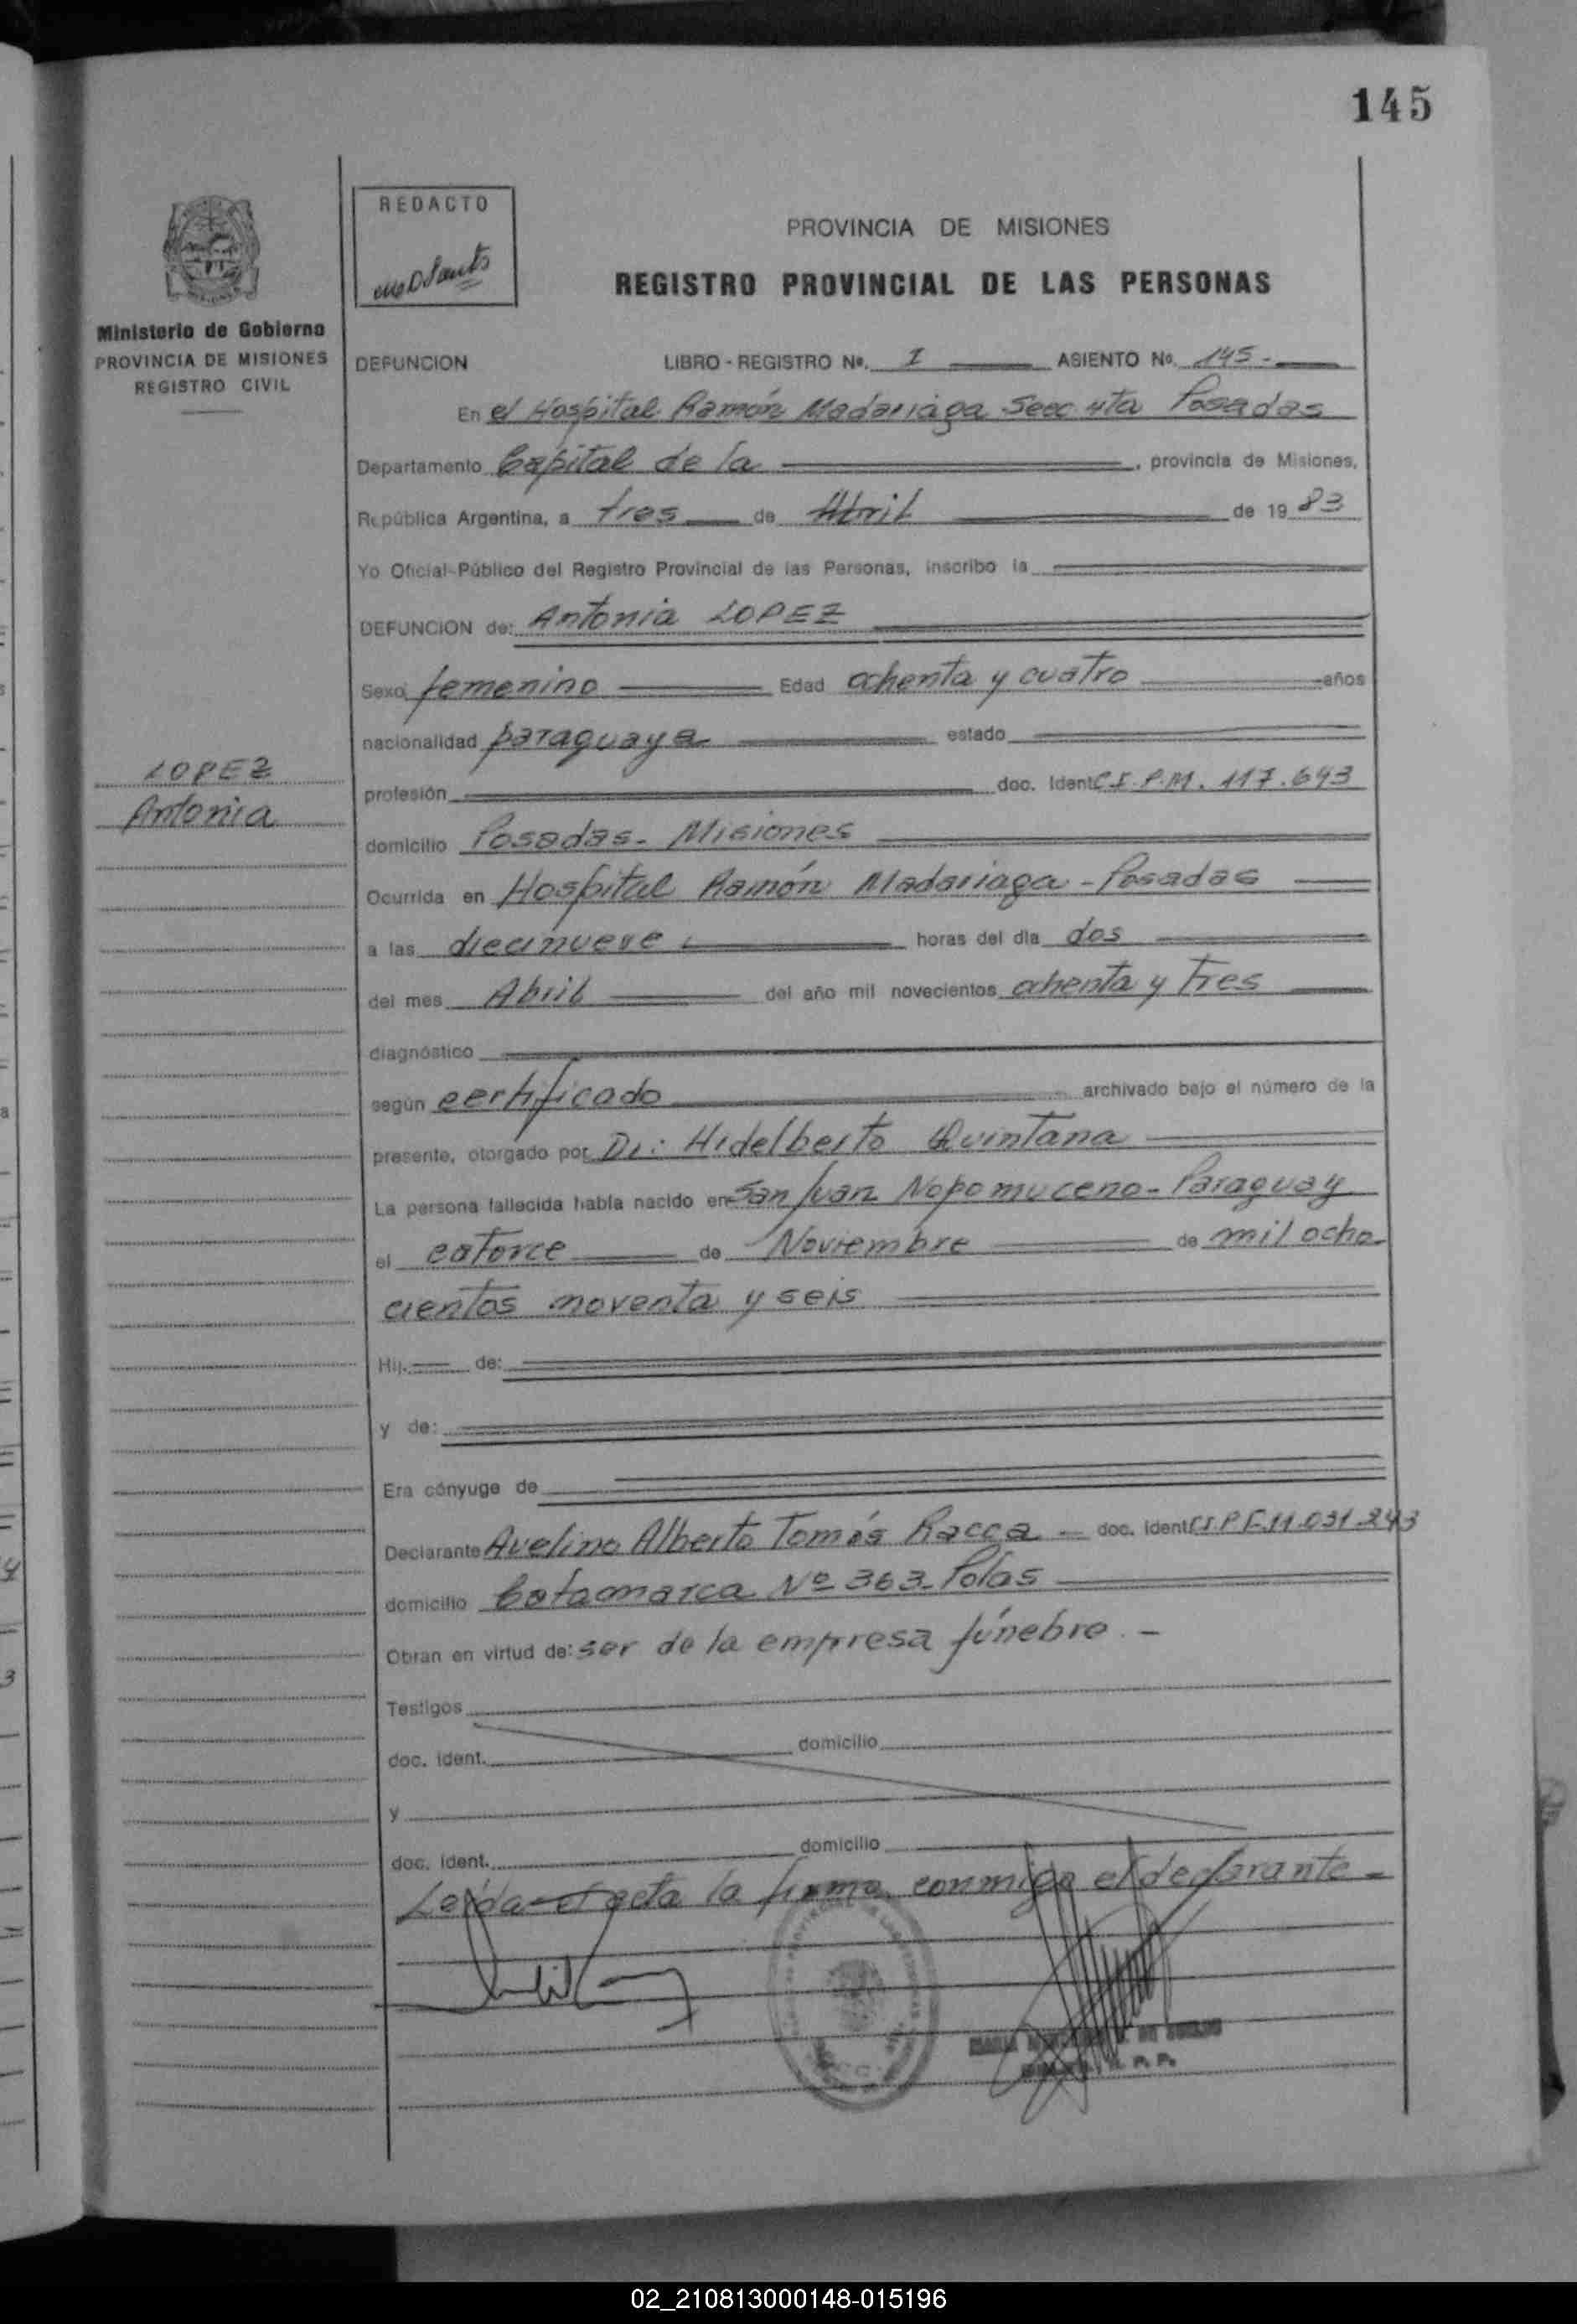 145
REDACTO
PROVINCIA DE MISIONES
REGISTRO PROVINCIAL DE LAS PERSONAS
Ministerio de Gobierno
PROVINCIA DE MISIONES
REGISTRO CIVIL
DEFUNCION LIBRO - REGISTRO Nº. I ASIENTO Nº. 145.-
En el Hospital Ramón Madariaga Secc 4ta Posadas
Departamento Capital de la , provincia de Misiones,
República Argentina, a tres de Abril de 1983
Yo Oficial Público del Registro Provincial de las Personas, inscribo la
DEFUNCION de: Antonia LOPEZ
Sexo femenino Edad ochenta y cuatro años
nacionalidad paraguaya estado
LOPEZ
Antonia
profesión doc. Ident C.I.P.M. 117.643
domicilio Posadas- Misiones
Ocurrida en Hospital Ramón Madariaga - Posadas
a las diecinueve horas del día dos
del mes Abril del año mil novecientos ochenta y tres
diagnóstico
según certificado archivado bajo el número de la
presente, otorgado por Dr: Hidelberto Quintana
La persona fallecida había nacido en San Juan Nopomuceno- Paraguay
el catorce de Noviembre de mil ocho
cientos noventa y seis
Hij. de:
y de:
Era cónyuge de
Declarante Avelino Alberto Tomás Racca doc. ident C.I.P.F. 11.031.243
domicilio Catamarca Nº 363- Pdas
Obran en virtud de: ser de la empresa fúnebre.-
Testigos
doc. ident. domicilio
y
doc. ident. domicilio
Leída el acta la firma conmigo el declarante-
02_210813000148-015196